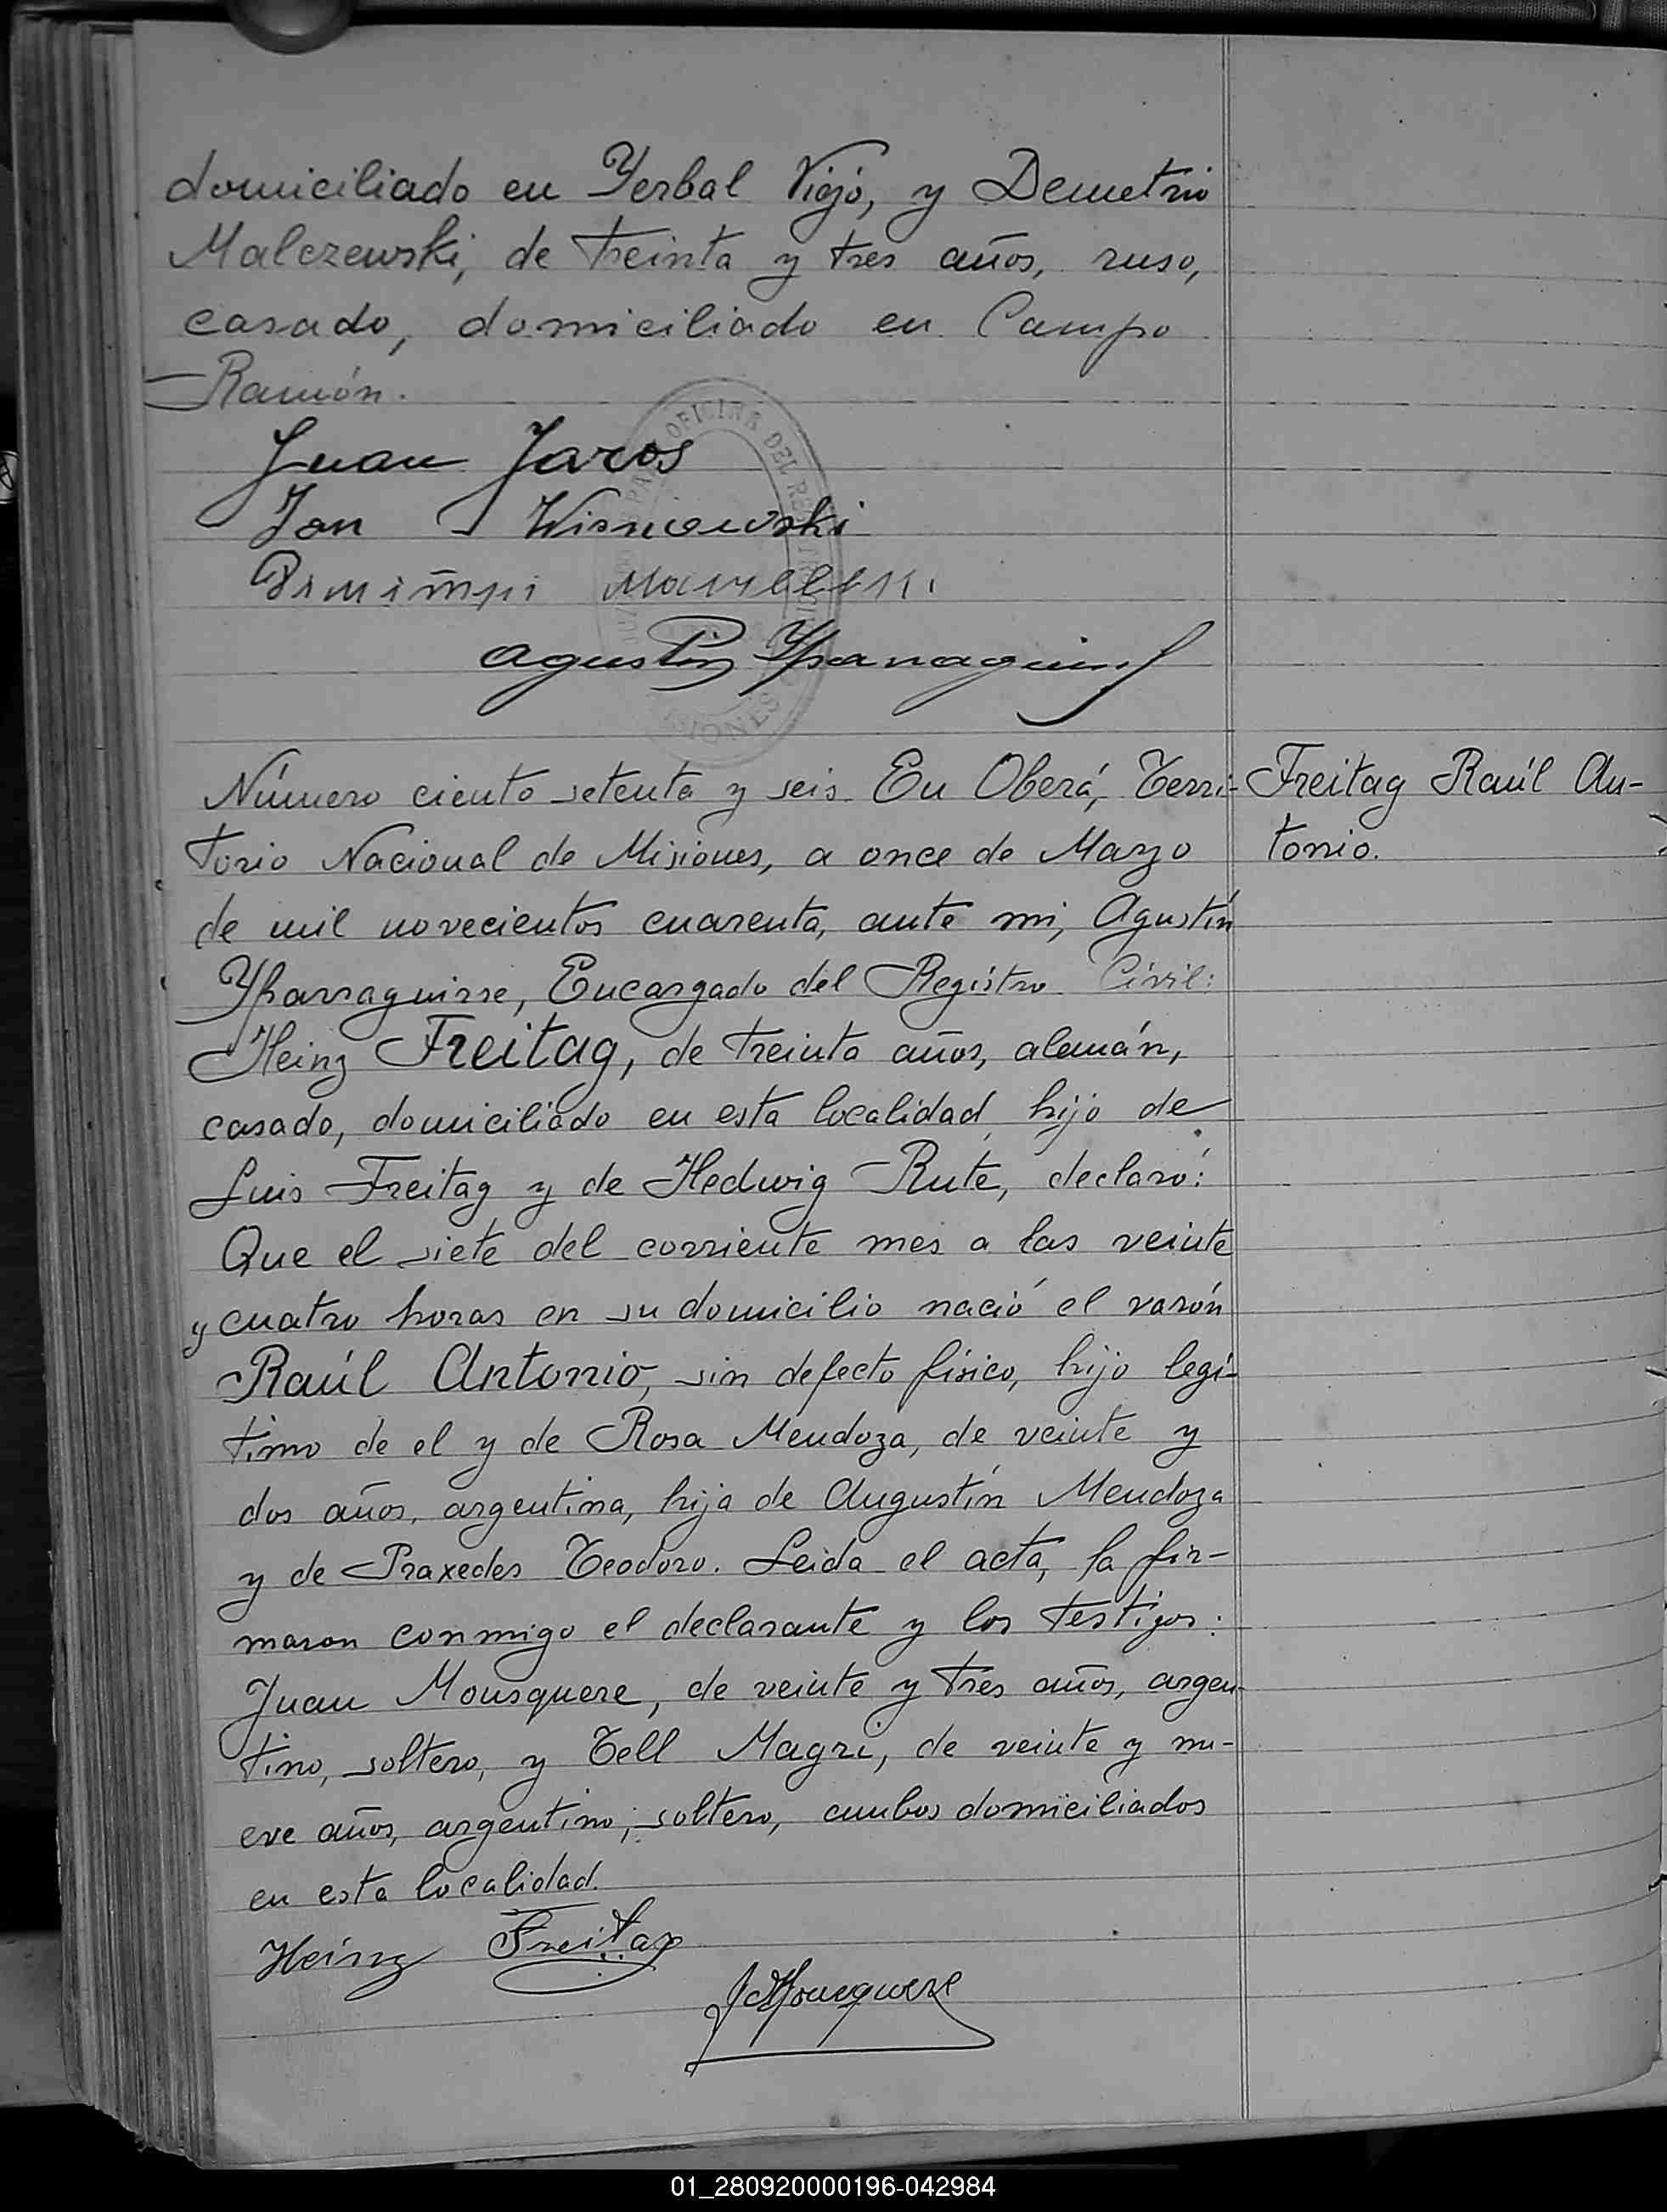 domiciliado en Yerbal Viejo, y Demetrio
Malczewski, de treinta y tres años, ruso,
casado, domiciliado en Campo
Ramón.
OFICINA DEL
Juan Jaros
Jan Wisniewski
Agustin Yparraguirre
SIONES
Número ciento setenta y seis. En Oberá, Terri-
torio Nacional de Misiones, a once de Marzo
de mil novecientos cuarenta, ante mi, Agustín
Yparraguirre, Encargado del Registro Civil:
Heinz Freitag, de treinta años, alemán,
casado, domiciliado en esta localidad, hijo de
Luis Freitag y de Hedwig Rute, declaró:
Que el siete del corriente mes a las veinte
y cuatro horas en su domicilio nació el varón
Raúl Antonio, sin defecto físico, hijo legí-
timo de el y de Rosa Mendoza, de veinte y
dos años, argentina, hija de Augustín Mendoza
y de Praxedes Teodoro. Leida el acta, la fir-
maron conmigo el declarante y los testigos:
Juan Mousquere, de veinte y tres años, argen-
tino, soltero, y Tell Magri, de veinte y nu-
eve años, argentino, soltero, ambos domiciliados
en esta localidad.
Heinz Freitag
J Mousquere
Freitag Raúl An-
tonio.
01_280920000196-042984